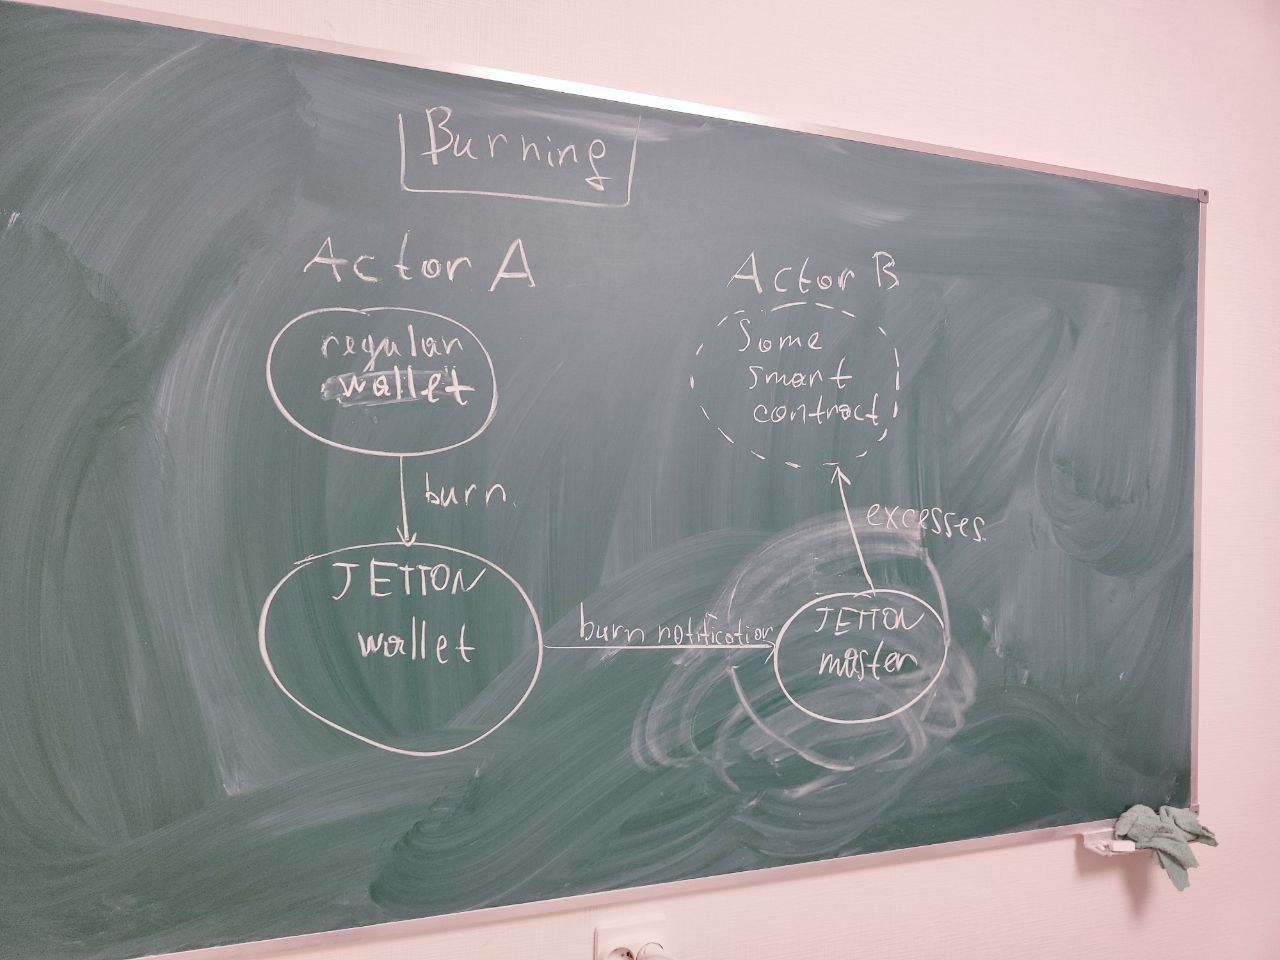 Burning
Actor A
regular
wallet
burn
JETTON
wallet
burn notification
Actor B
Some
smart
contract
excesses
JETTON
master